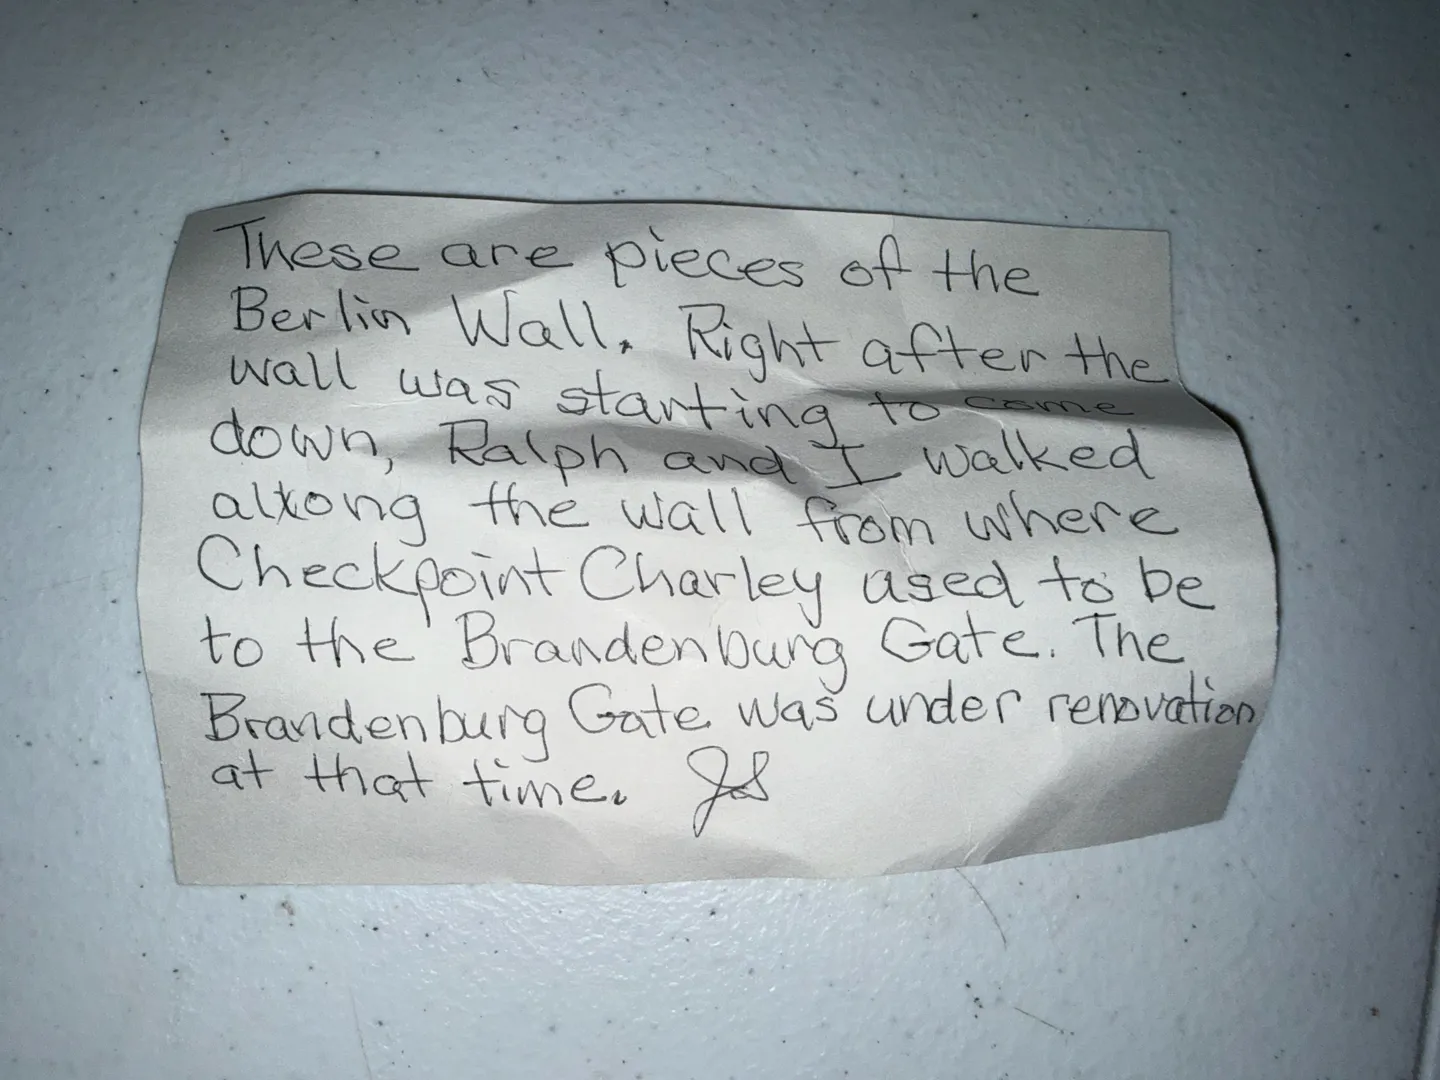 These are pieces of the
Berlin Wall. Right after the
wall was starting to come
down, Ralph and I walked
along the wall from where
Checkpoint Charley used to be
to the Brandenburg Gate. The
Brandenburg Gate was under renovation
at that time.